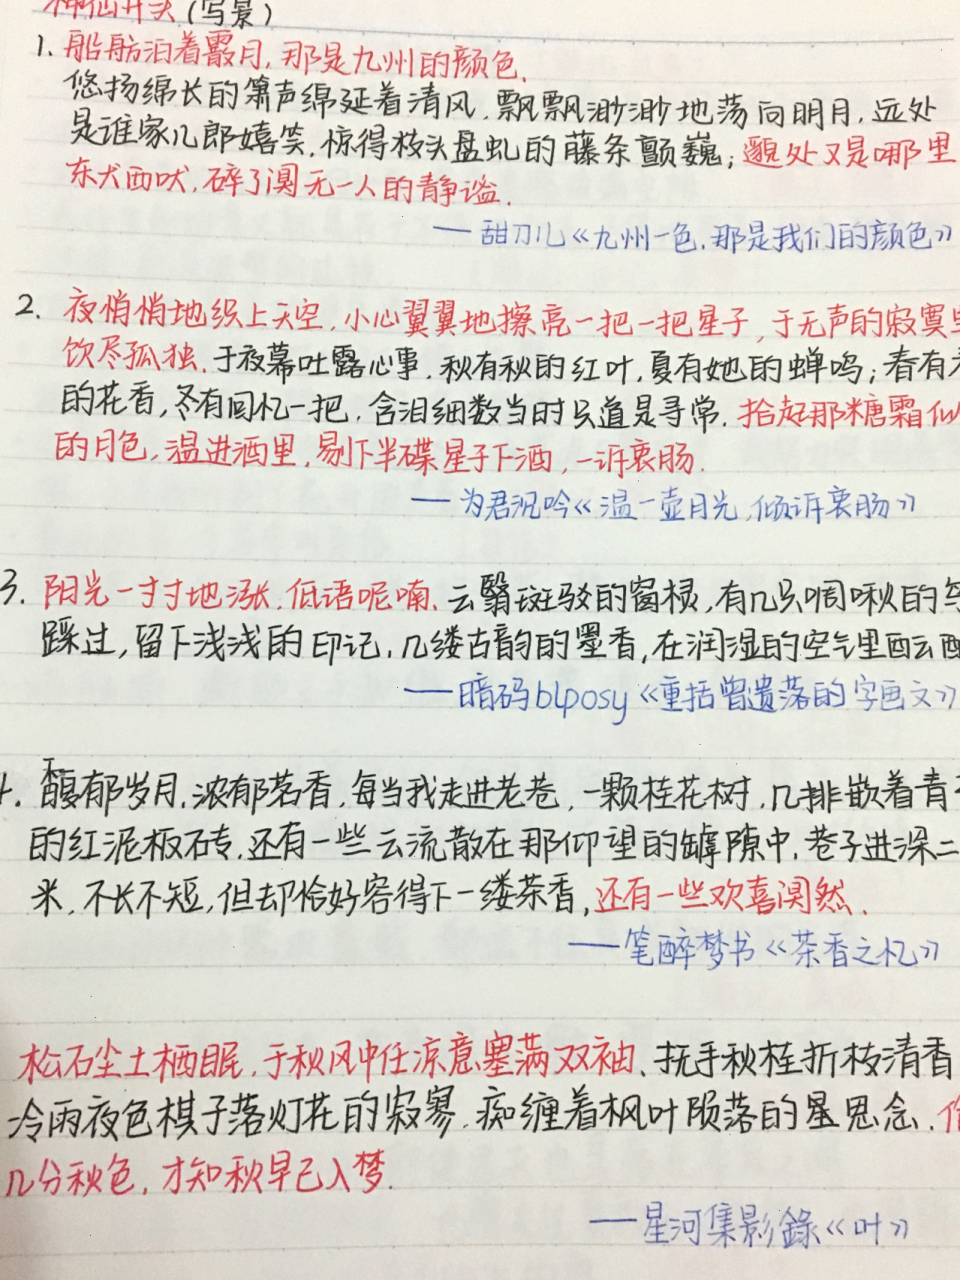 神仙开头(写景)
1. 船舫泊着霰月,那是九州的颜色.
悠扬绵长的箫声绵延着清风,飘飘渺渺地荡向明月,远处
是谁家儿郎嬉笑,惊得枝头盘虬的藤条颤巍;邈处又是哪里
东犬西吠,碎了溟无一人的静谧.
—甜刀儿《九州一色,那是我们的颜色》
2. 夜悄悄地织上天空,小心翼翼地擦亮一把一把星子,于无声的寂寞里
饮尽孤独.于夜幕吐露心事,秋有秋的红叶,夏有她的蝉鸣;春有
的花香,冬有回忆一把,含泪细数当时只道是寻常.拾起那糖霜似
的月色,温进酒里,剔下半碟星子下酒,一诉衷肠.
—为君沉吟《温一壶月光,倾诉衷肠》
3. 阳光一寸寸地涨,低语呢喃.云翳斑驳的窗棂,有几只啁啾的
踩过,留下浅浅的印记.几缕古韵的墨香,在润湿的空气里酝酿
—暗码blposy《重拾曾遗落的字画文》
4. 馥郁岁月,浓郁茗香,每当我走进老巷,一颗桂花树,几排嵌着青
的红泥板砖,还有一些云流散在那仰望的罅隙中.巷子进深二
米,不长不短,但却恰好容得下一缕茶香,还有一些欢喜溟然.
—笔醉梦书《茶香之忆》
松石尘土栖眠,于秋风中任凉意塞满双袖、抚手秋桂折枝清香
冷雨夜色棋子落灯花的寂寥.痴缠着枫叶陨落的星思念.
几分秋色,才知秋早已入梦.
—星河集影錄《叶》